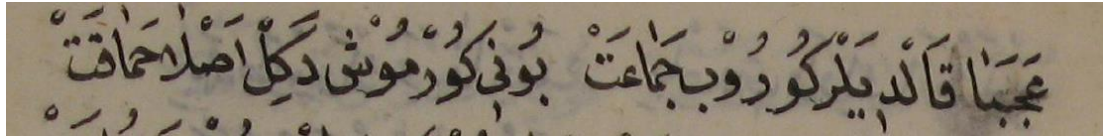 عَجَبَا قَالْدِيلَرْ كُورُوبْ جَمَاعَتْ بُونِي كُورْمُوشْ دَكِلْ اَصْلَا حَمَاقَتْ